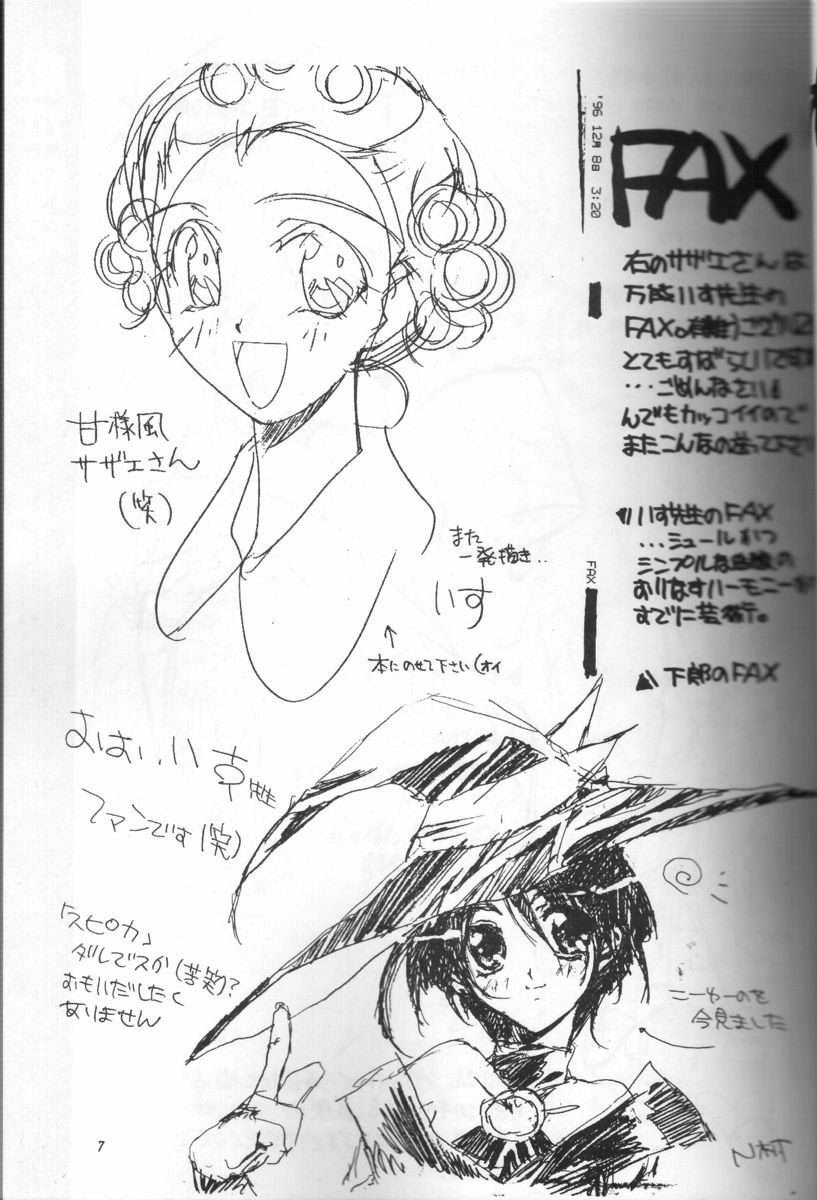 '96 12月 8日 3:20
FAX
右のサザエさんは
万盛いす先生の
FAX。有難うござい
とてもすばらしいです
…ごめんなさい。
んでもカッコイイので
またこんなの送って下さい
いす先生のFAX
…ミュールかつ
シンプルな
おりなすハーモニー
すでに芸術。
▲下郎のFAX
FAX
甘様風
サザエさん
(笑)
また
一発描き..
いす
↑
本にのせて下さい(オイ
いす先生
ファンです(笑)
「スピカ」
ダレですか(苦笑)?
おもいだしたく
ありません
こーゆーのを
今見ました
N村T
7